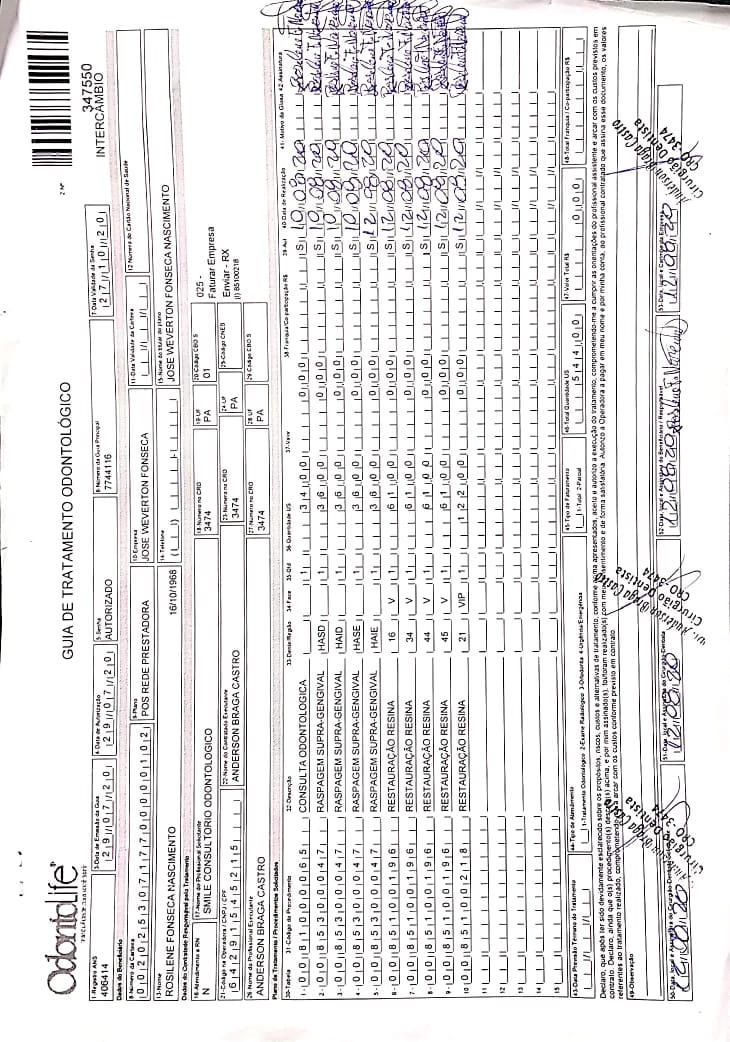 OdontoLife
GUIA DE TRATAMENTO ODONTOLÓGICO
2 Nº
347550
INTERCÂMBIO
1-Registro ANS
406414
3-Data de Emissão da Guia
29/07/20
4-Data de Autorização
29/07/20
5-Senha
AUTORIZADO
6-Número da Guia Principal
7744116
7-Data Validade da Senha
27/10/20
Dados do Beneficiário
8-Número da Carteira
00202530717700000110 2
9-Plano
POS REDE PRESTADORA
10-Empresa
JOSE WEVERTON FONSECA
11-Data Validade da Carteira
12 Número do Cartão Nacional de Saúde
13-Nome
ROSILENE FONSECA NASCIMENTO
16/10/1968
14-Telefone
15-Nome do titular do plano
JOSE WEVERTON FONSECA NASCIMENTO
Dados do Contratado Responsável pelo Tratamento
16-Atendimento a RN
N
17-Nome do Profissional Solicitante
SMILE CONSULTORIO ODONTOLOGICO
18-Número no CRO
3474
19-UF
PA
20-Código CBO S
01
025 -
Faturar Empresa
Enviar - RX
(I) 85100218
21-Código na Operadora / CNPJ / CPF
64291545215
22-Nome do Contratado Executante
ANDERSON BRAGA CASTRO
23-Número no CRO
3474
24-UF
PA
25-Código CNES
26-Nome do Profissional Executante
ANDERSON BRAGA CASTRO
27-Número no CRO
3474
28-UF
PA
29-Código CBO S
Plano de Tratamento / Procedimentos Solicitados
30-Tabela 31-Código do Procedimento 32-Descrição 33-Dente/Região 34-Face 35-Qtd 36-Quantidade US 37-Valor 38-Franquia/Co-participação R$ 39-Aut 40-Data de Realização 41-Motivo da Glosa 42-Assinatura
1- 00 81000065 CONSULTA ODONTOLOGICA 1 34,00 0,00 S 10/08/20
2- 00 85300047 RASPAGEM SUPRA-GENGIVAL HASD 1 36,00 0,00 S 10/08/20
3- 00 85300047 RASPAGEM SUPRA-GENGIVAL HAID 1 36,00 0,00 S 10/08/20
4- 00 85300047 RASPAGEM SUPRA-GENGIVAL HASE 1 36,00 0,00 S 10/08/20
5- 00 85300047 RASPAGEM SUPRA-GENGIVAL HAIE 1 36,00 0,00 S 12/08/20
6- 00 85100196 RESTAURAÇÃO RESINA 16 V 1 61,00 0,00 S 12/08/20
7- 00 85100196 RESTAURAÇÃO RESINA 34 V 1 61,00 0,00 S 12/08/20
8- 00 85100196 RESTAURAÇÃO RESINA 44 V 1 61,00 0,00 S 12/08/20
9- 00 85100196 RESTAURAÇÃO RESINA 45 V 1 61,00 0,00 S 12/08/20
10 00 85100218 RESTAURAÇÃO RESINA 21 VIP 1 122,00 0,00 S 12/08/20
11
12
13
14
15
43-Data Previsão Término do Tratamento
44-Tipo de Atendimento
1-Tratamento Odontológico 2-Exame Radiológico 3-Ortodontia 4-Urgência/Emergência
45-Tipo de Faturamento
1-Total 2-Parcial
46-Total Quantidade US
544,00
47-Valor Total R$
0,00
48-Total Franquia / Co-participação R$
Declaro, que após ter sido devidamente esclarecido sobre os propósitos, riscos, custos e alternativas de tratamento, conforme acima apresentados, aceito e autorizo a execução do tratamento, comprometendo-me a cumprir as orientações do profissional assistente e arcar com os custos previstos em
contrato. Declaro, ainda que o(s) procedimento(s) descrito(s) acima, e por mim assinado(s), foi/foram realizado(s) com meu consentimento e de forma satisfatória. Autorizo a Operadora a pagar em meu nome e por minha conta, ao profissional contratado que assina esse documento, os valores
referentes ao tratamento realizado, comprometendo-me a arcar com os custos conforme previsto em contrato
49-Observação
50-Data, local e Assinatura do Cirurgião-Dentista Solicitante
12/08/20
51-Data, local e Assinatura do Cirurgião-Dentista
12/08/20
52-Data, local e Assinatura do Beneficiário / Responsável
12/08/20
53-Data, local e Carimbo da Empresa
12/08/20
Anderson Braga Castro
Cirurgião Dentista
CRO 3474